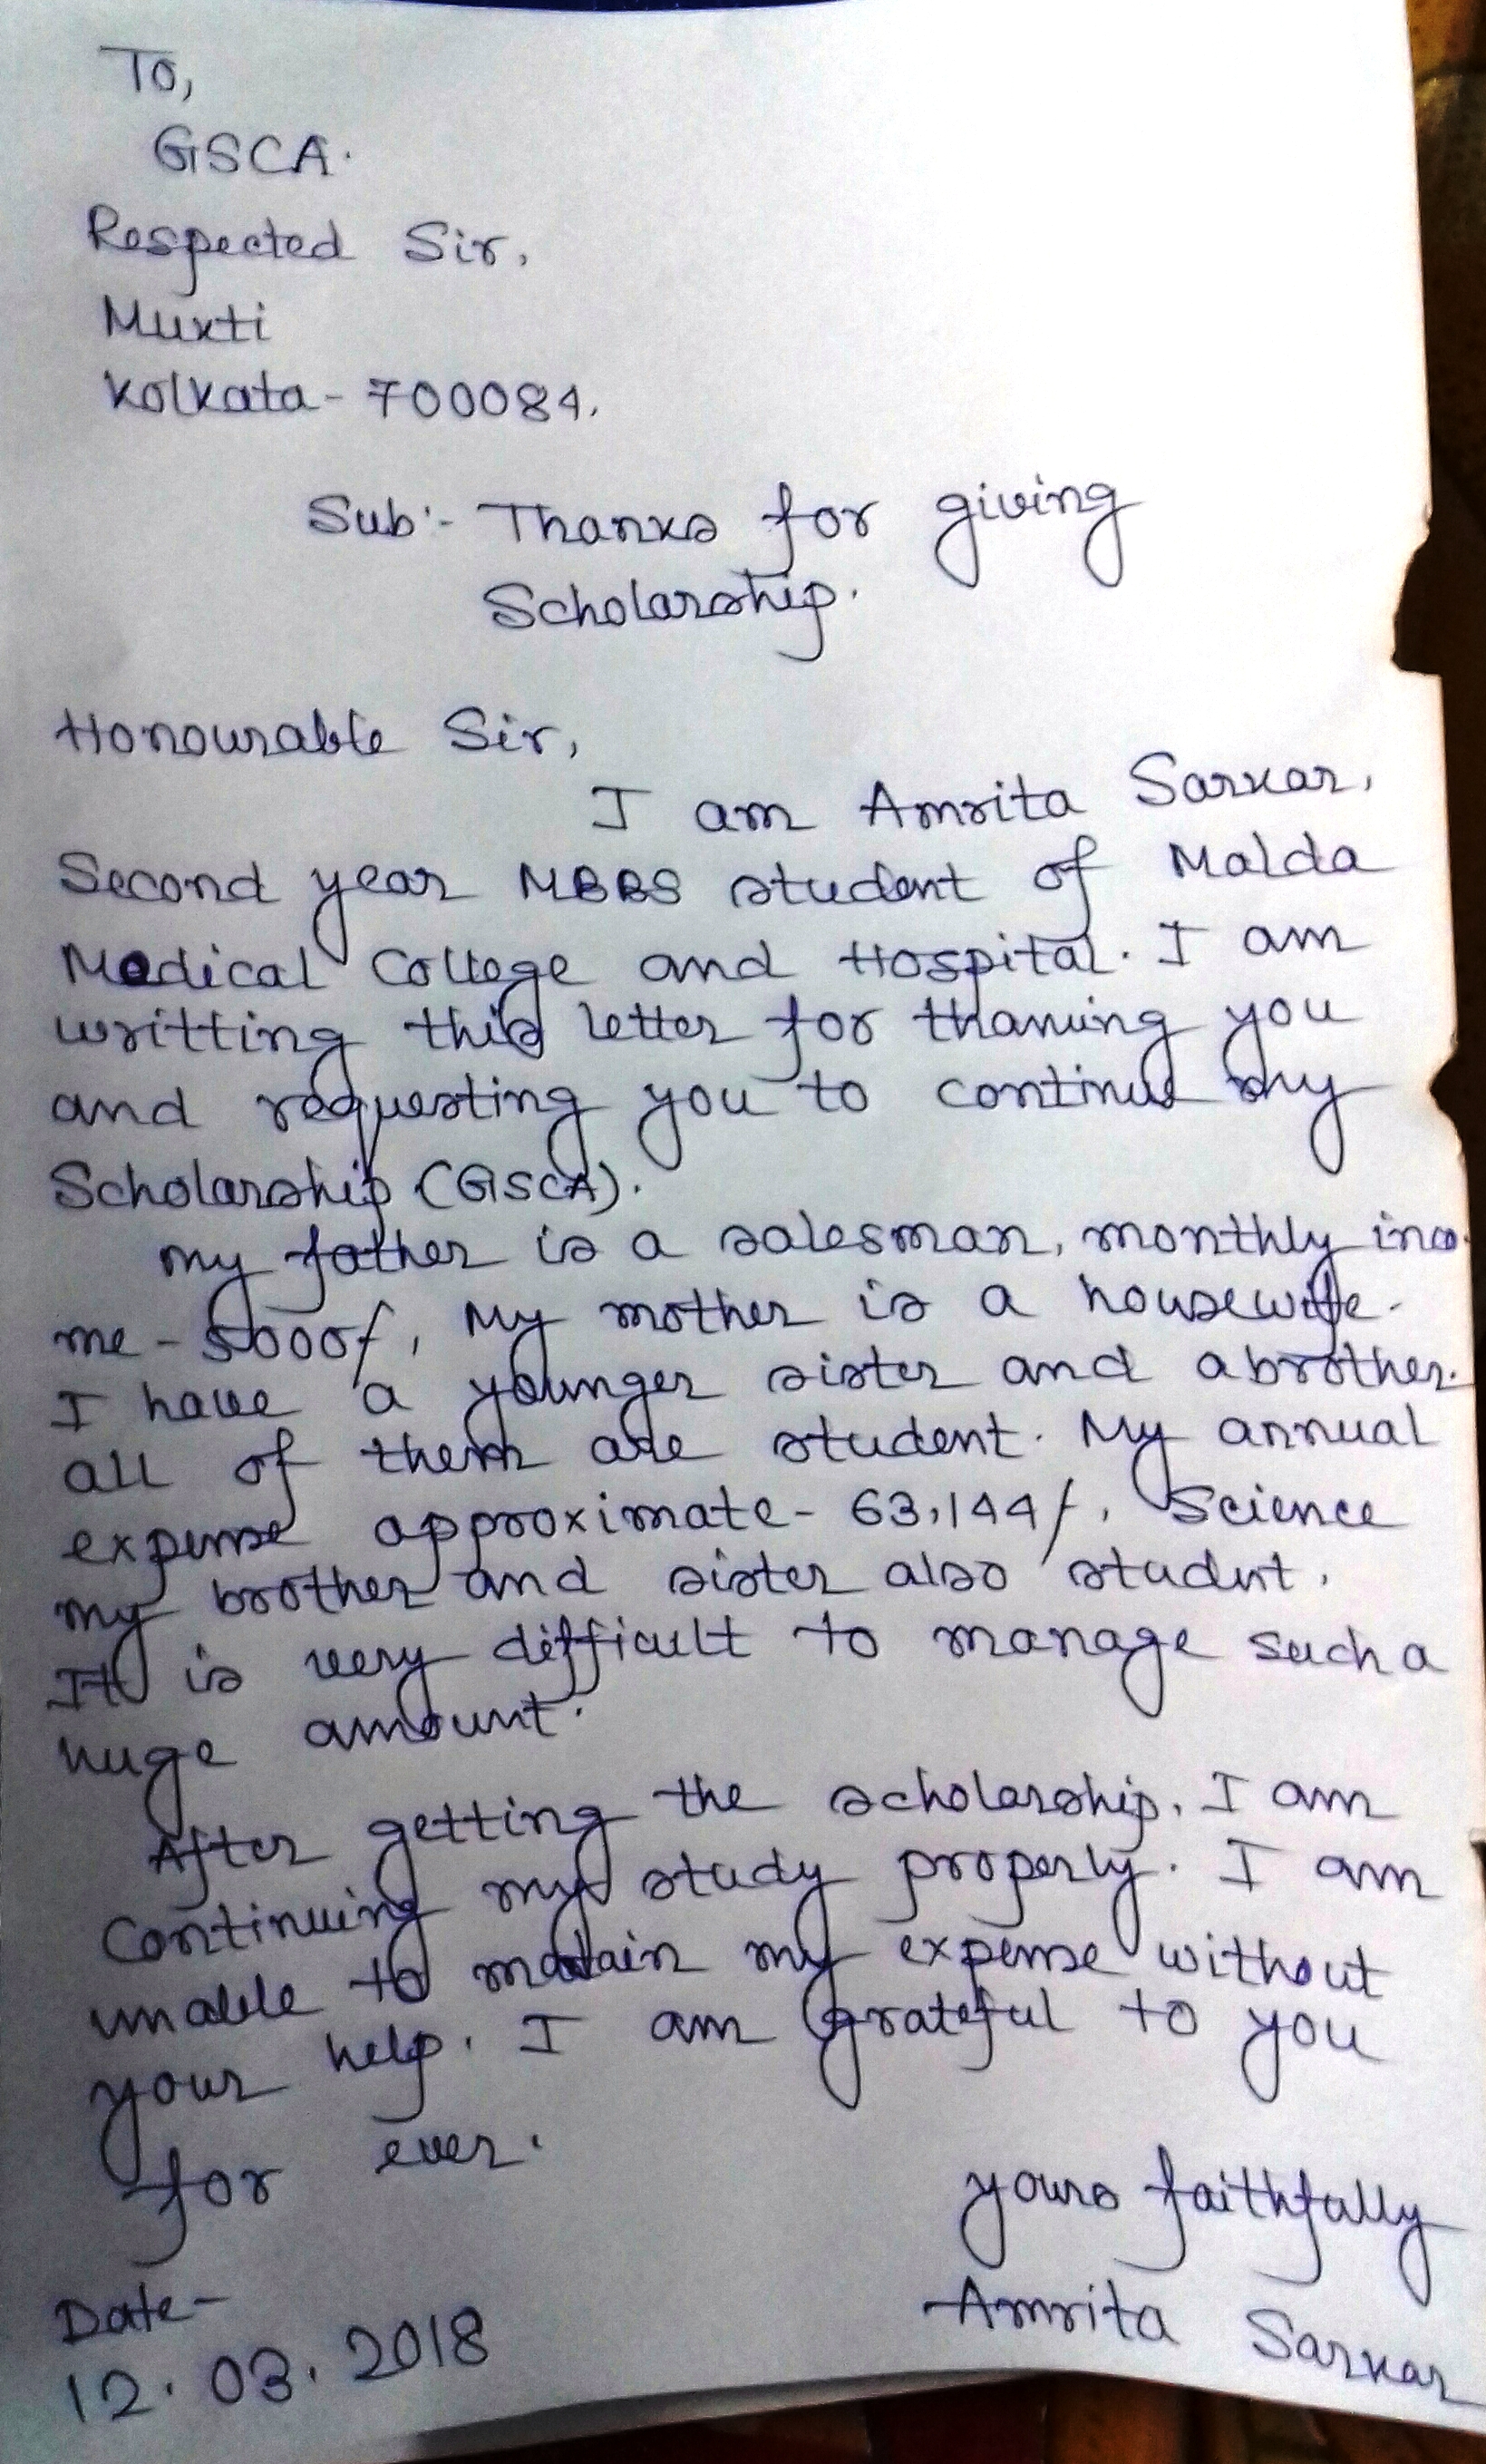 To,
GSCA.
Respected Sir,
Mukti
Kolkata - 700084.
Sub:- Thanks for giving
Scholarship.
Honourable Sir,
I am Amrita Sarkar,
Second year MBBS student of Malda
Medical College and Hospital. I am
writting this letter for thanking you
and requesting you to continue my
Scholarship (GSCA).
My father is a salesman, monthly inco-
me - 5000/, My mother is a housewife.
I have a younger sister and a brother.
all of them are student. My annual
expense approximate - 63,144/, Science
my brother and sister also student.
It is very difficult to manage such a
huge amount.
After getting the scholarship, I am
Continuing my study properly. I am
unable to my expense without
your help. I am grateful to you
for ever.
yours faithfully
Amrita Sarkar
Date-
12.03.2018